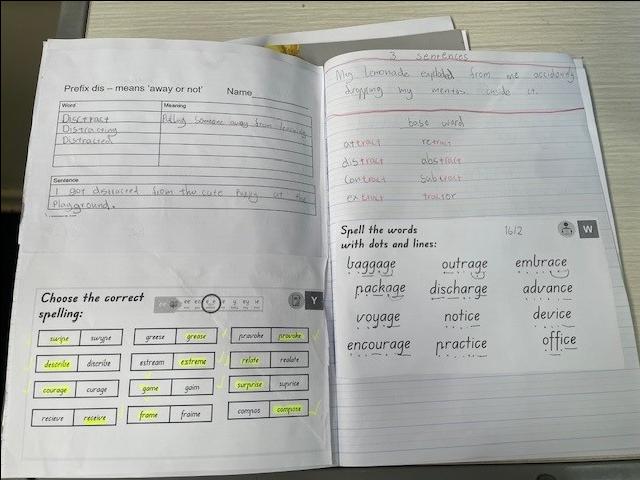 Prefix dis – means ‘away or not’ Name
Word Meaning
Disctract Pulling someone away from learning
Distracting
Distracted
Sentence
I got distracted from the cute Puppy at the
Playground.
Choose the correct
spelling:
Y
swipe swype
greese grease
provoke provoke
describe discribe
estream extreme
relate realate
courage curage
game gaim
surprise suprice
recieve receive
frame fraime
compos compose
3 sentences
My lemonade exploded from me accidently
dropping my mentos inside it.
base word
attract retract
distract abstract
contract subtract
extract tractor
Spell the words
with dots and lines:
16/2
W
baggage outrage embrace
package discharge advance
voyage notice device
encourage practice office